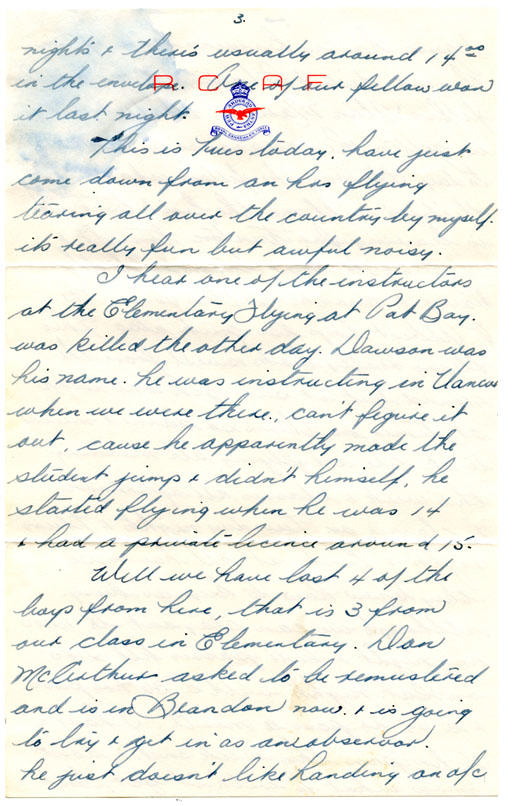 3.
nights & there's usually around 14⁰⁰
in the envelope. One of our fellow won
R C A F
it last night.
This is Tues today, have just
come down from an hrs flying
tearing all over the country by myself.
it's really fun but awful noisy.
I hear one of the instructors
at the Elementary Flying at Pat Bay.
was killed the other day. Dawson was
his name. he was instructing in Vancou
when we were there., can't figure it
out, cause he apparently made the
student jump & didn't himself, he
started flying when he was 14
& had a private licence around 15.
Well we have lost 4 of the
boys from here, that is 3 from
our class in Elementary. Don
McArthur asked to be remustered
and is in Brandon now. & is going
to try & get in as an observor.
he just doesn't like landing an a/c